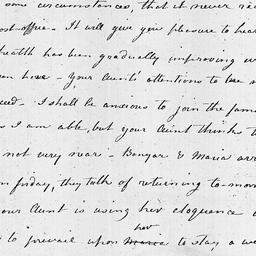 some circumstances, that it never
ost-office. - It will give you pleasure to hear
health has been gradually improving
here - Your Aunt's attentions to
- I shall be anxious to join the fam
s I am able, but your Aunt thinks
not very near - Banyar & Maria arr
n friday, they talk of returning to-mor
our Aunt is using her eloquence
to prevail upon Maria her to stay a we